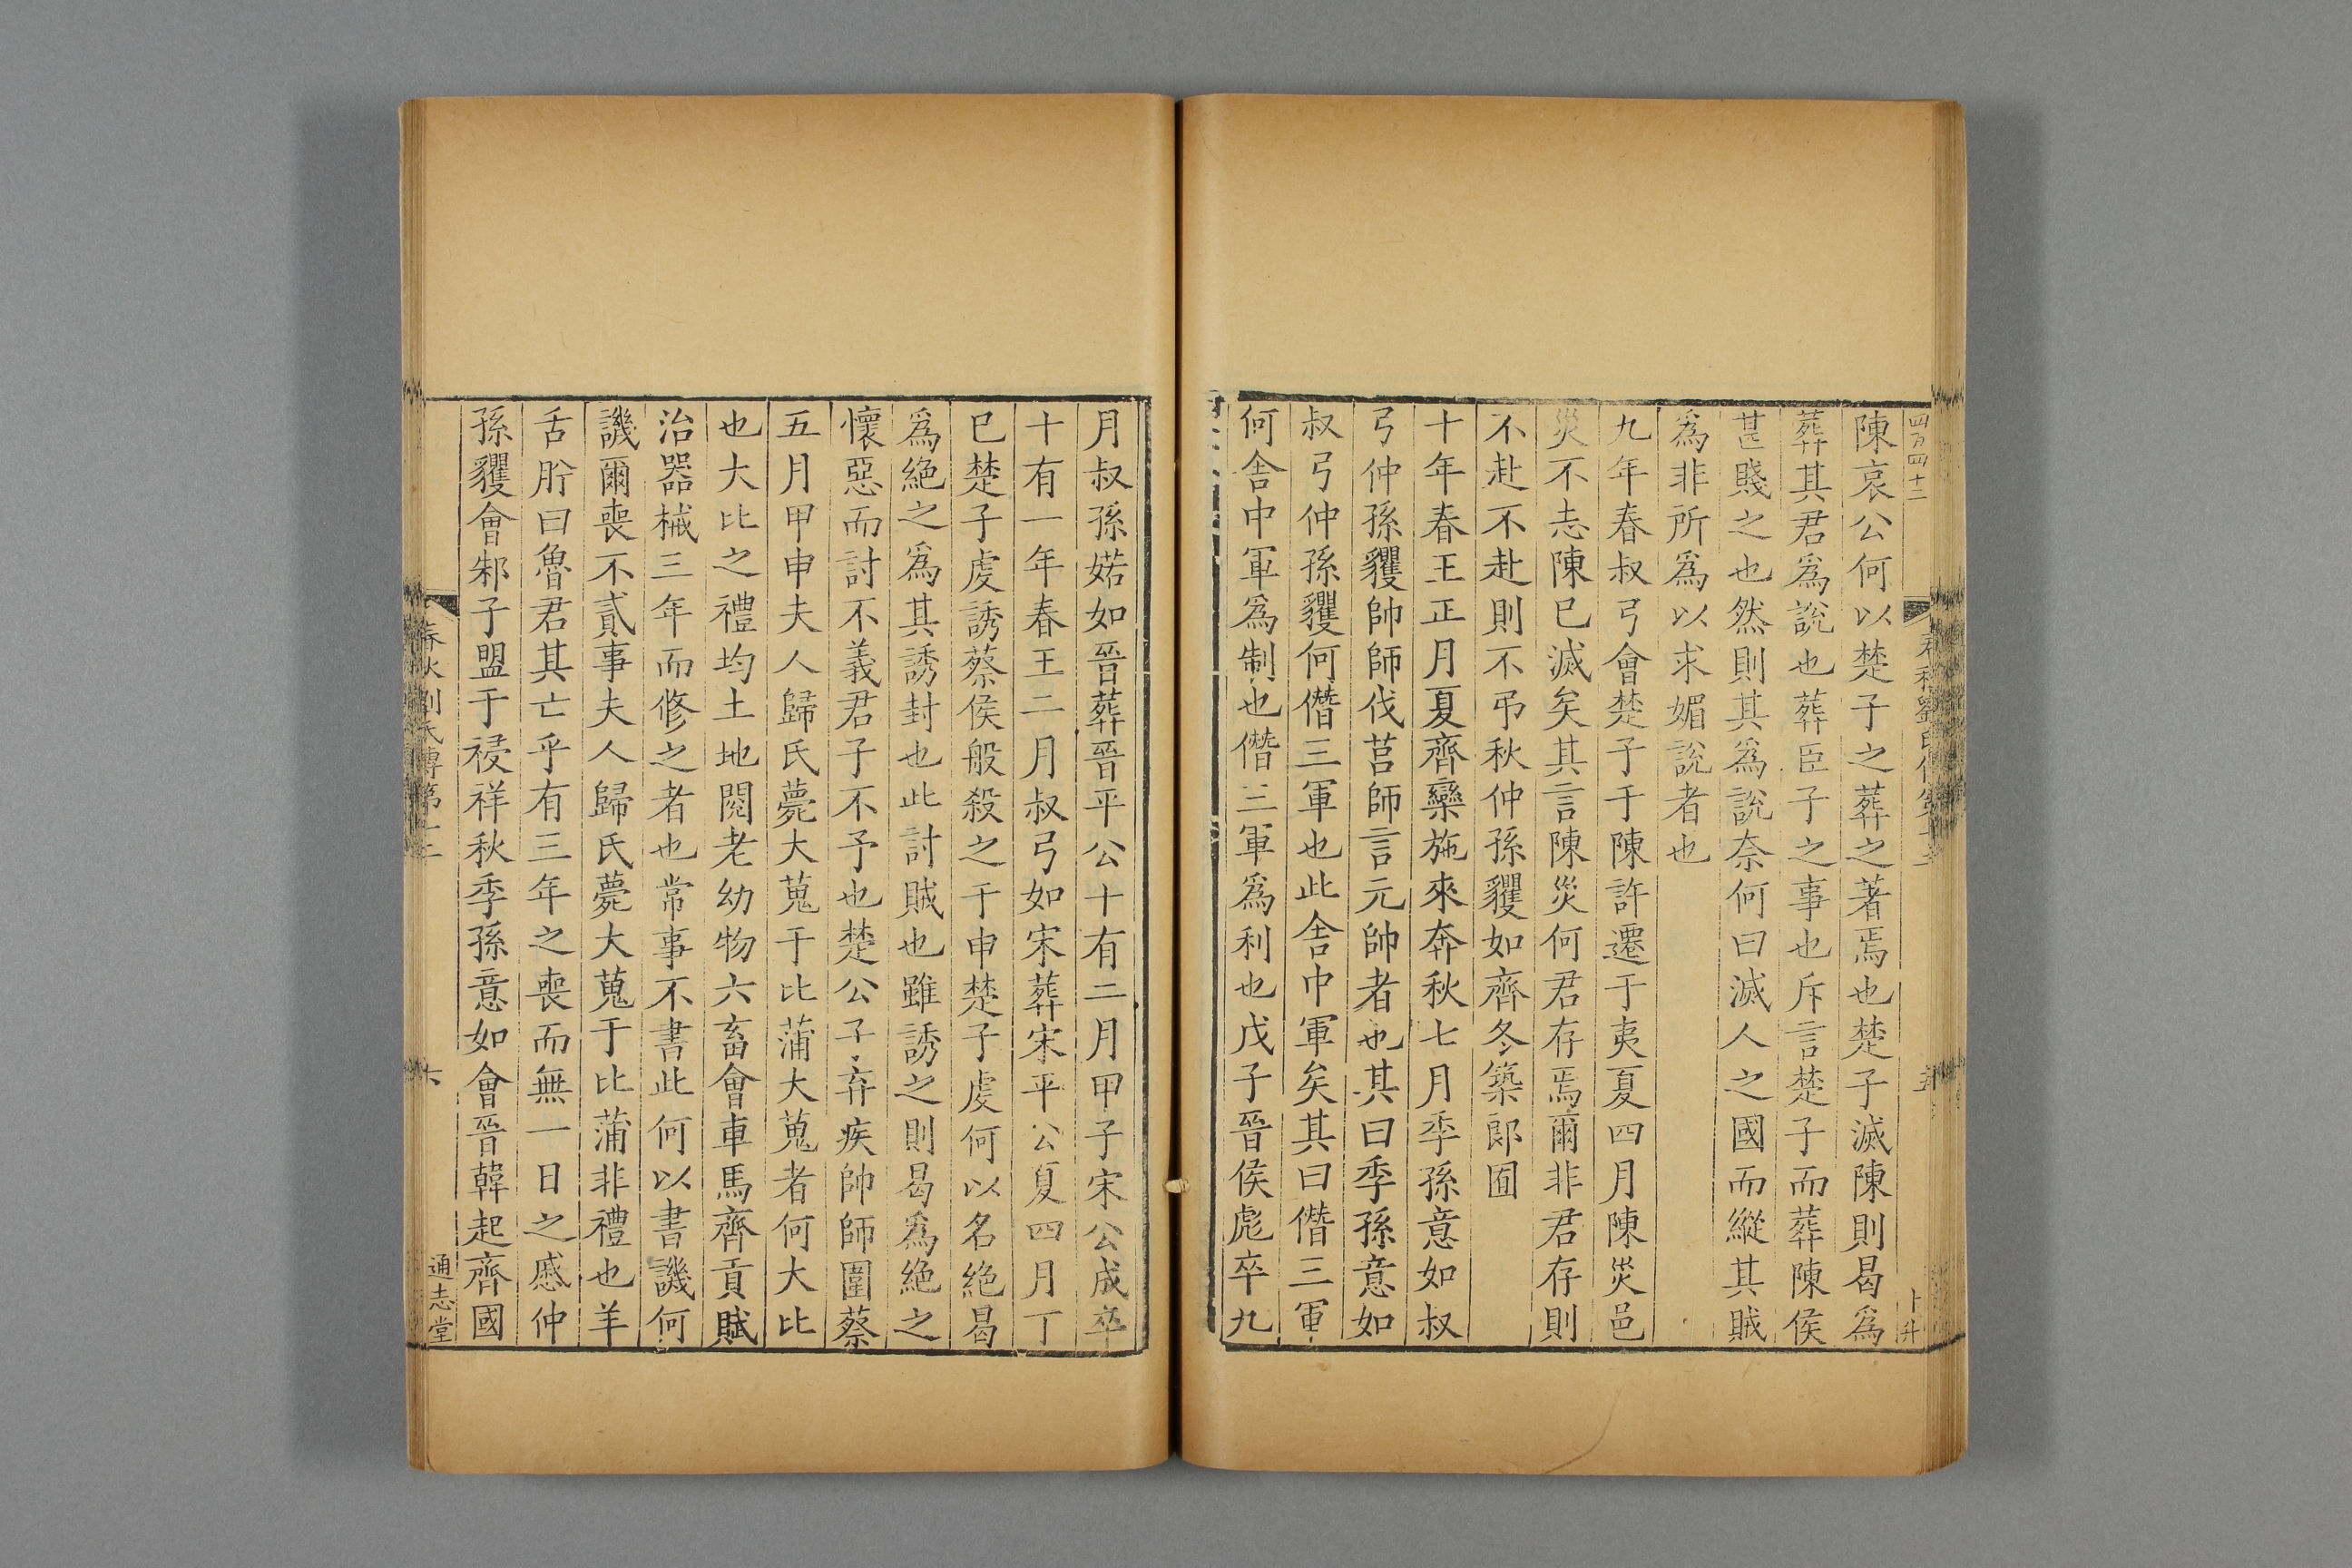 四百四十二
陳哀公何以楚子之葬之著焉也楚子滅陳則曷爲
葬其君爲說也葬臣子之事也斥言楚子而葬陳侯
甚賤之也然則其爲說奈何曰滅人之國而縱其賊
爲非所爲以求媚說者也
九年春叔弓會楚子于陳許遷于夷夏四月陳災邑
災不志陳已滅矣其言陳災何君存焉爾非君存則
不赴不赴則不弔秋仲孫貜如齊冬築郎囿
十年春王正月夏齊欒施來奔秋七月季孫意如叔
弓仲孫貜帥師伐莒師言元帥者也其曰季孫意如
叔弓仲孫貜何僭三軍也此舍中軍矣其曰僭三軍
何舍中軍爲制也僭三軍爲利也戊子晉侯彪卒九
月叔孫婼如晉葬晉平公十有二月甲子宋公成卒
十有一年春王二月叔弓如宋葬宋平公夏四月丁
巳楚子虔誘蔡侯般殺之于申楚子虔何以名絕曷
爲絕之爲其誘封也此討賊也雖誘之則曷爲絕之
懷惡而討不義君子不予也楚公子弃疾帥師圍蔡
五月甲申夫人歸氏薨大蒐于比蒲大蒐者何大比
也大比之禮均土地閱老幼物六畜會車馬齊貢賦
治器械三年而修之者也常事不書此何以書譏何
譏爾喪不貳事夫人歸氏薨大蒐于比蒲非禮也羊
舌肸曰魯君其亡乎有三年之喪而無一日之慼仲
孫貜會邾子盟于祲祥秋季孫意如會晉韓起齊國
春秋劉氏傳第十二
六
通志堂